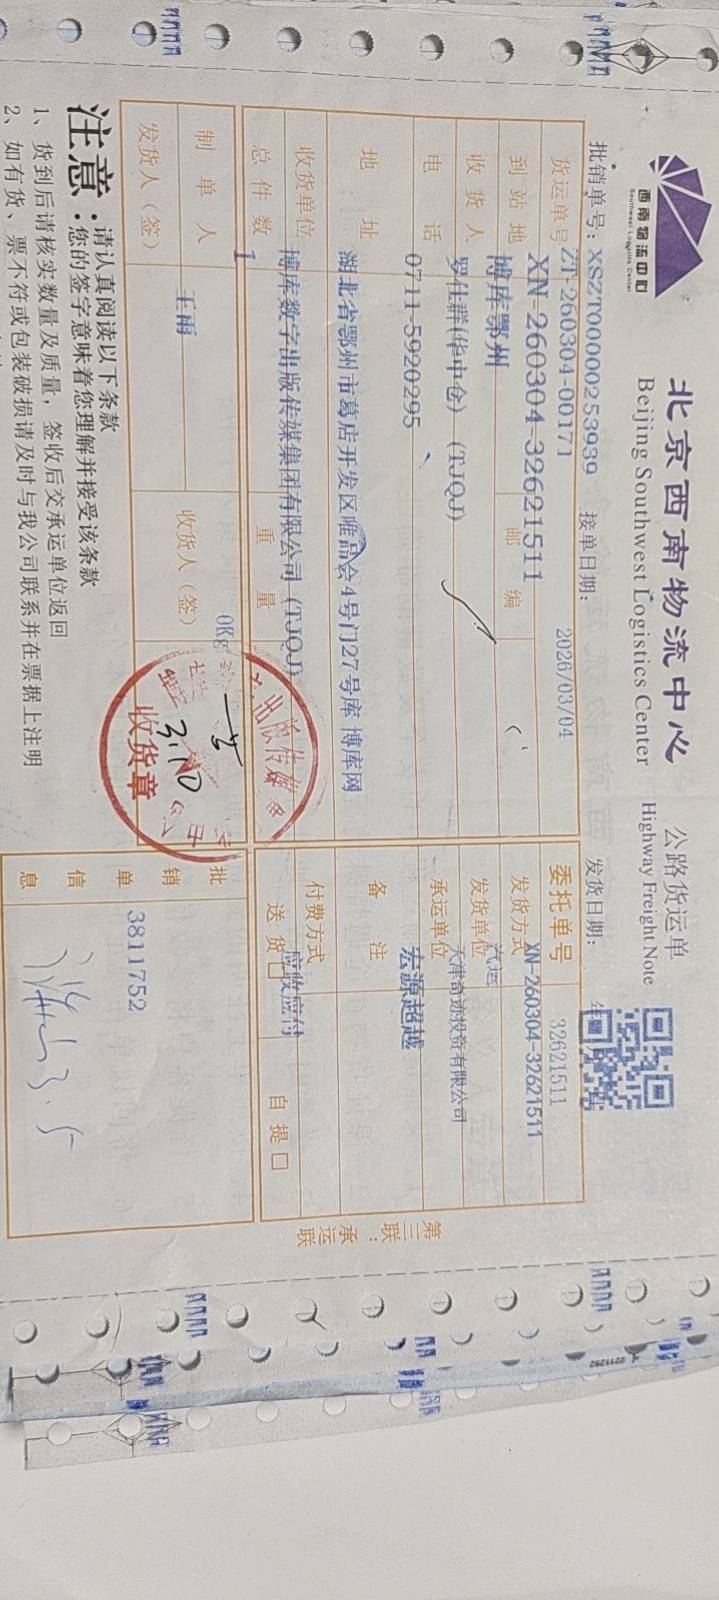 西南物流中心
Southwest Logistics Center
北京西南物流中心
Beijing Southwest Logistics Center
公路货运单
Highway Freight Note
批销单号: XSZT00000253939 接单日期: 2026/03/04 发货日期:
货运单号 ZT-260304-00171
XN-260304-32621511
委托单号 32621511
XN-260304-32621511
到站地 博库鄂州 邮编
发货方式 汽运
收货人 罗仕群(华中仓) (TJQJ)
发货单位 天津奇迹投资有限公司
电话 0711-5920295
承运单位 宏源超越
地址 湖北省鄂州市葛店开发区唯品会4号门27号库 博库网
备注
收货单位 博库数字出版传媒集团有限公司 (TJQJ)
付费方式 应收应付
总件数 1 重量 0Kg
送货 □ 自提 □
制单人 王雨
收货人(签)
发货人(签)
出版传媒
收货章
3.10
批销单信息
3811752
3.5
第三联:承运联
注意:
请认真阅读以下条款
您的签字意味着您理解并接受该条款
1、货到后请核实数量及质量,签收后交承运单位返回
2、如有货、票不符或包装破损请及时与我公司联系并在票据上注明